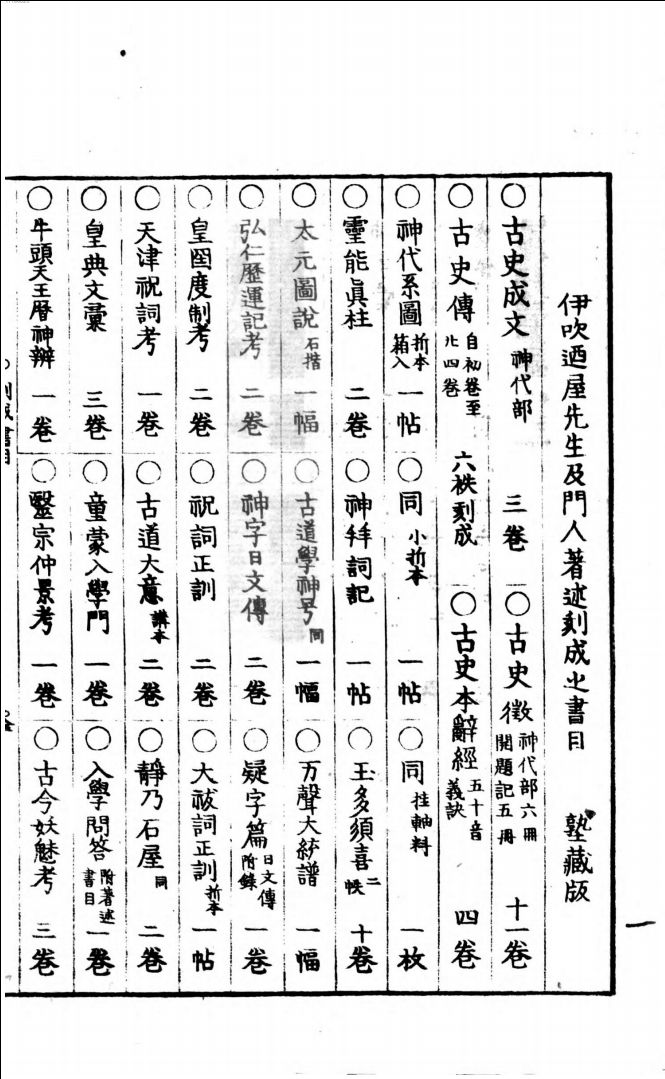 伊吹廼屋先生及門人著述刻成之書目 塾藏版
○古史成文 神代部 三卷 ○古史徴 神代部六冊 開題記五冊 十一卷
○古史傳 自初卷至廿四卷 六袟刻成 ○古史本辭經 五十音義訣 四卷
○神代系圖 折本箱入 一帖 ○同 小折本 一帖 ○同 挂軸料 一枚
○靈能眞柱 二卷 ○神拜詞記 一帖 ○玉多須喜 二帙 十卷
○太元圖說 石摺 一幅 ○古道學神号 同 一幅 ○万聲大統譜 一幅
○弘仁歷運記考 二卷 ○神字日文傳 二卷 ○疑字篇 日文傳附錄 一卷
○皇國度制考 二卷 ○祝詞正訓 二卷 ○大祓詞正訓 折本 一帖
○天津祝詞考 一卷 ○古道大意 講本 二卷 ○靜乃石屋 同 二卷
○皇典文彙 三卷 ○童蒙入學門 一卷 ○入學問答 附著述書目 一卷
○牛頭天王曆神辯 一卷 ○醫宗仲景考 一卷 ○古今妖魅考 三卷